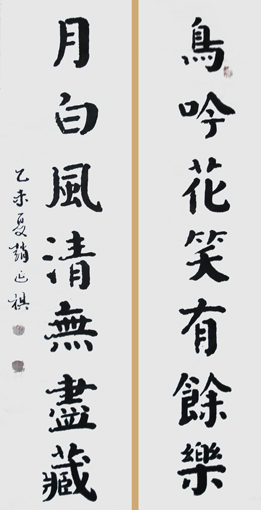 鳥吟花笑有餘樂
月白風清無盡藏
乙未夏趙